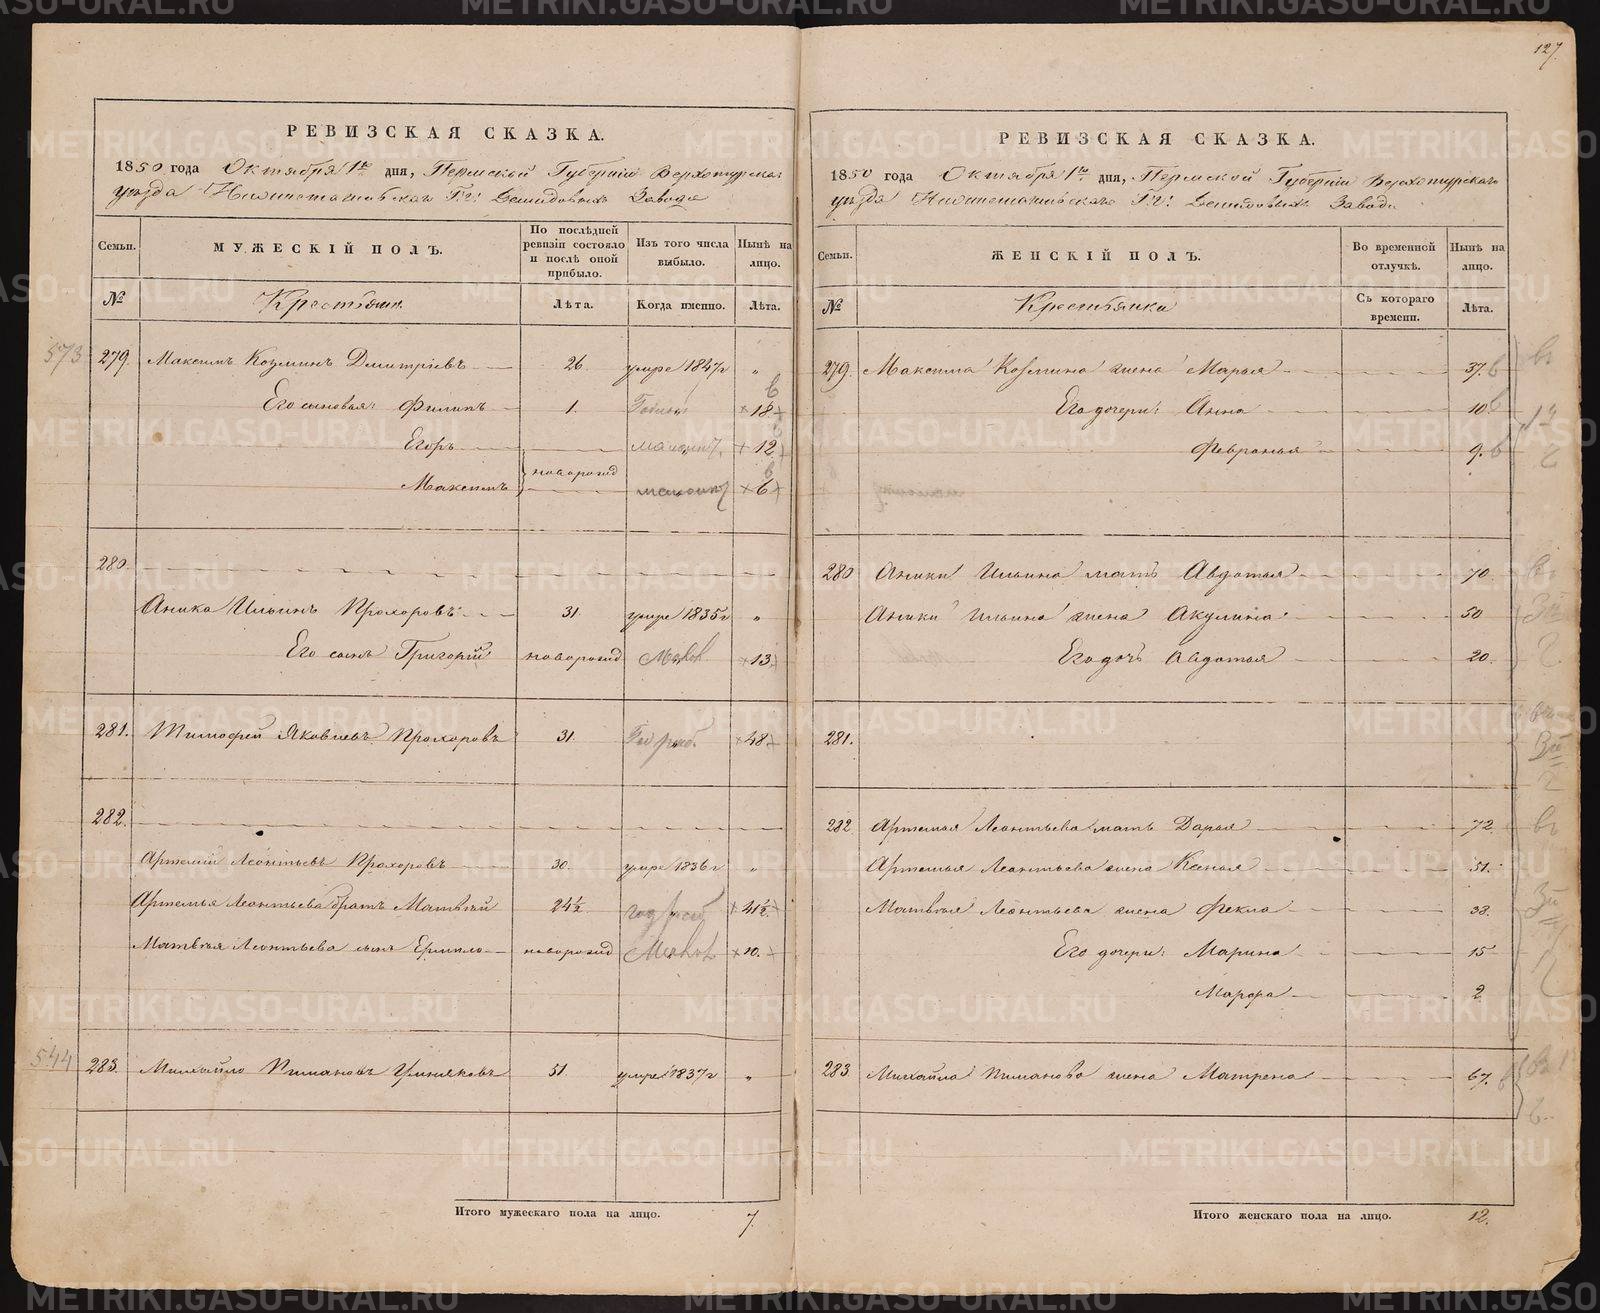 127.
РЕВИЗСКАЯ СКАЗКА.
1850 года Октября 1го дня, Пермской Губерніи Верхотурскаго
уѣзда Нижнетагильскаго Г.г. Демидовыхъ Завода
Семьи. МУЖЕСКІЙ ПОЛЪ. По послѣдней ревизіи состояло и послѣ оной прибыло. Изъ того числа выбыло. Нынѣ на лицо.
№ Крестьяне Лѣта. Когда именно. Лѣта.
573 279. Максимъ Козминъ Дмитріевъ 26. умре 1847 г „
Его сыновья: Филипъ 1. 18
Егоръ 12
новорожд
Максимъ 6
280.
Аника Ильинъ Прохоровъ 31. умре 1835 г „
Его сынъ Григорій новорожд 13
281. Тимофей Яковлевъ Прохоровъ 31. 48
282.
Артемій Леонтьевъ Прохоровъ 30. умре 1836 г „
Артемья Леонтьева братъ Матвѣй 24½ 41½
Матвѣя Леонтьева сынъ Ермило новорожд 10.
544 283. Михайло Пимановъ 51 умре 1837 г „
Итого мужескаго пола на лицо. 7.
РЕВИЗСКАЯ СКАЗКА.
1850 года Октября 1го дня, Пермской Губерніи Верхотурскаго
уѣзда Нижнетагильскаго Г.г. Демидовыхъ Завода
Семьи. ЖЕНСКІЙ ПОЛЪ. Во временной отлучкѣ. Нынѣ на лицо.
№ Крестьянки Съ котораго времени. Лѣта.
279. Максима Козмина жена Марья 37.
Его дочери: Анна 10
Февронья 9.
280 Аники Ильина мать Авдотья 70
Аники Ильина жена Акулина 50
Его дочь Авдотья 20.
281.
282 Артемья Леонтьева мать Дарья 72
Артемья Леонтьева жена Ксенья 51.
Матвѣя Леонтьева жена Фекла 38.
Его дочери: Марина 15
Марфа 2
283 Михайла Пиманова жена Матрена 67.
Итого женскаго пола на лицо. 12.
METRIKI.GASO-URAL.RU